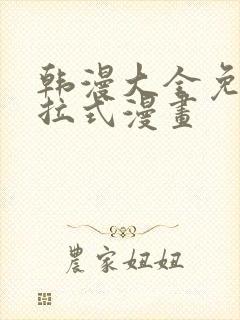 韩漫大全免
拉式漫畫
農家妞妞